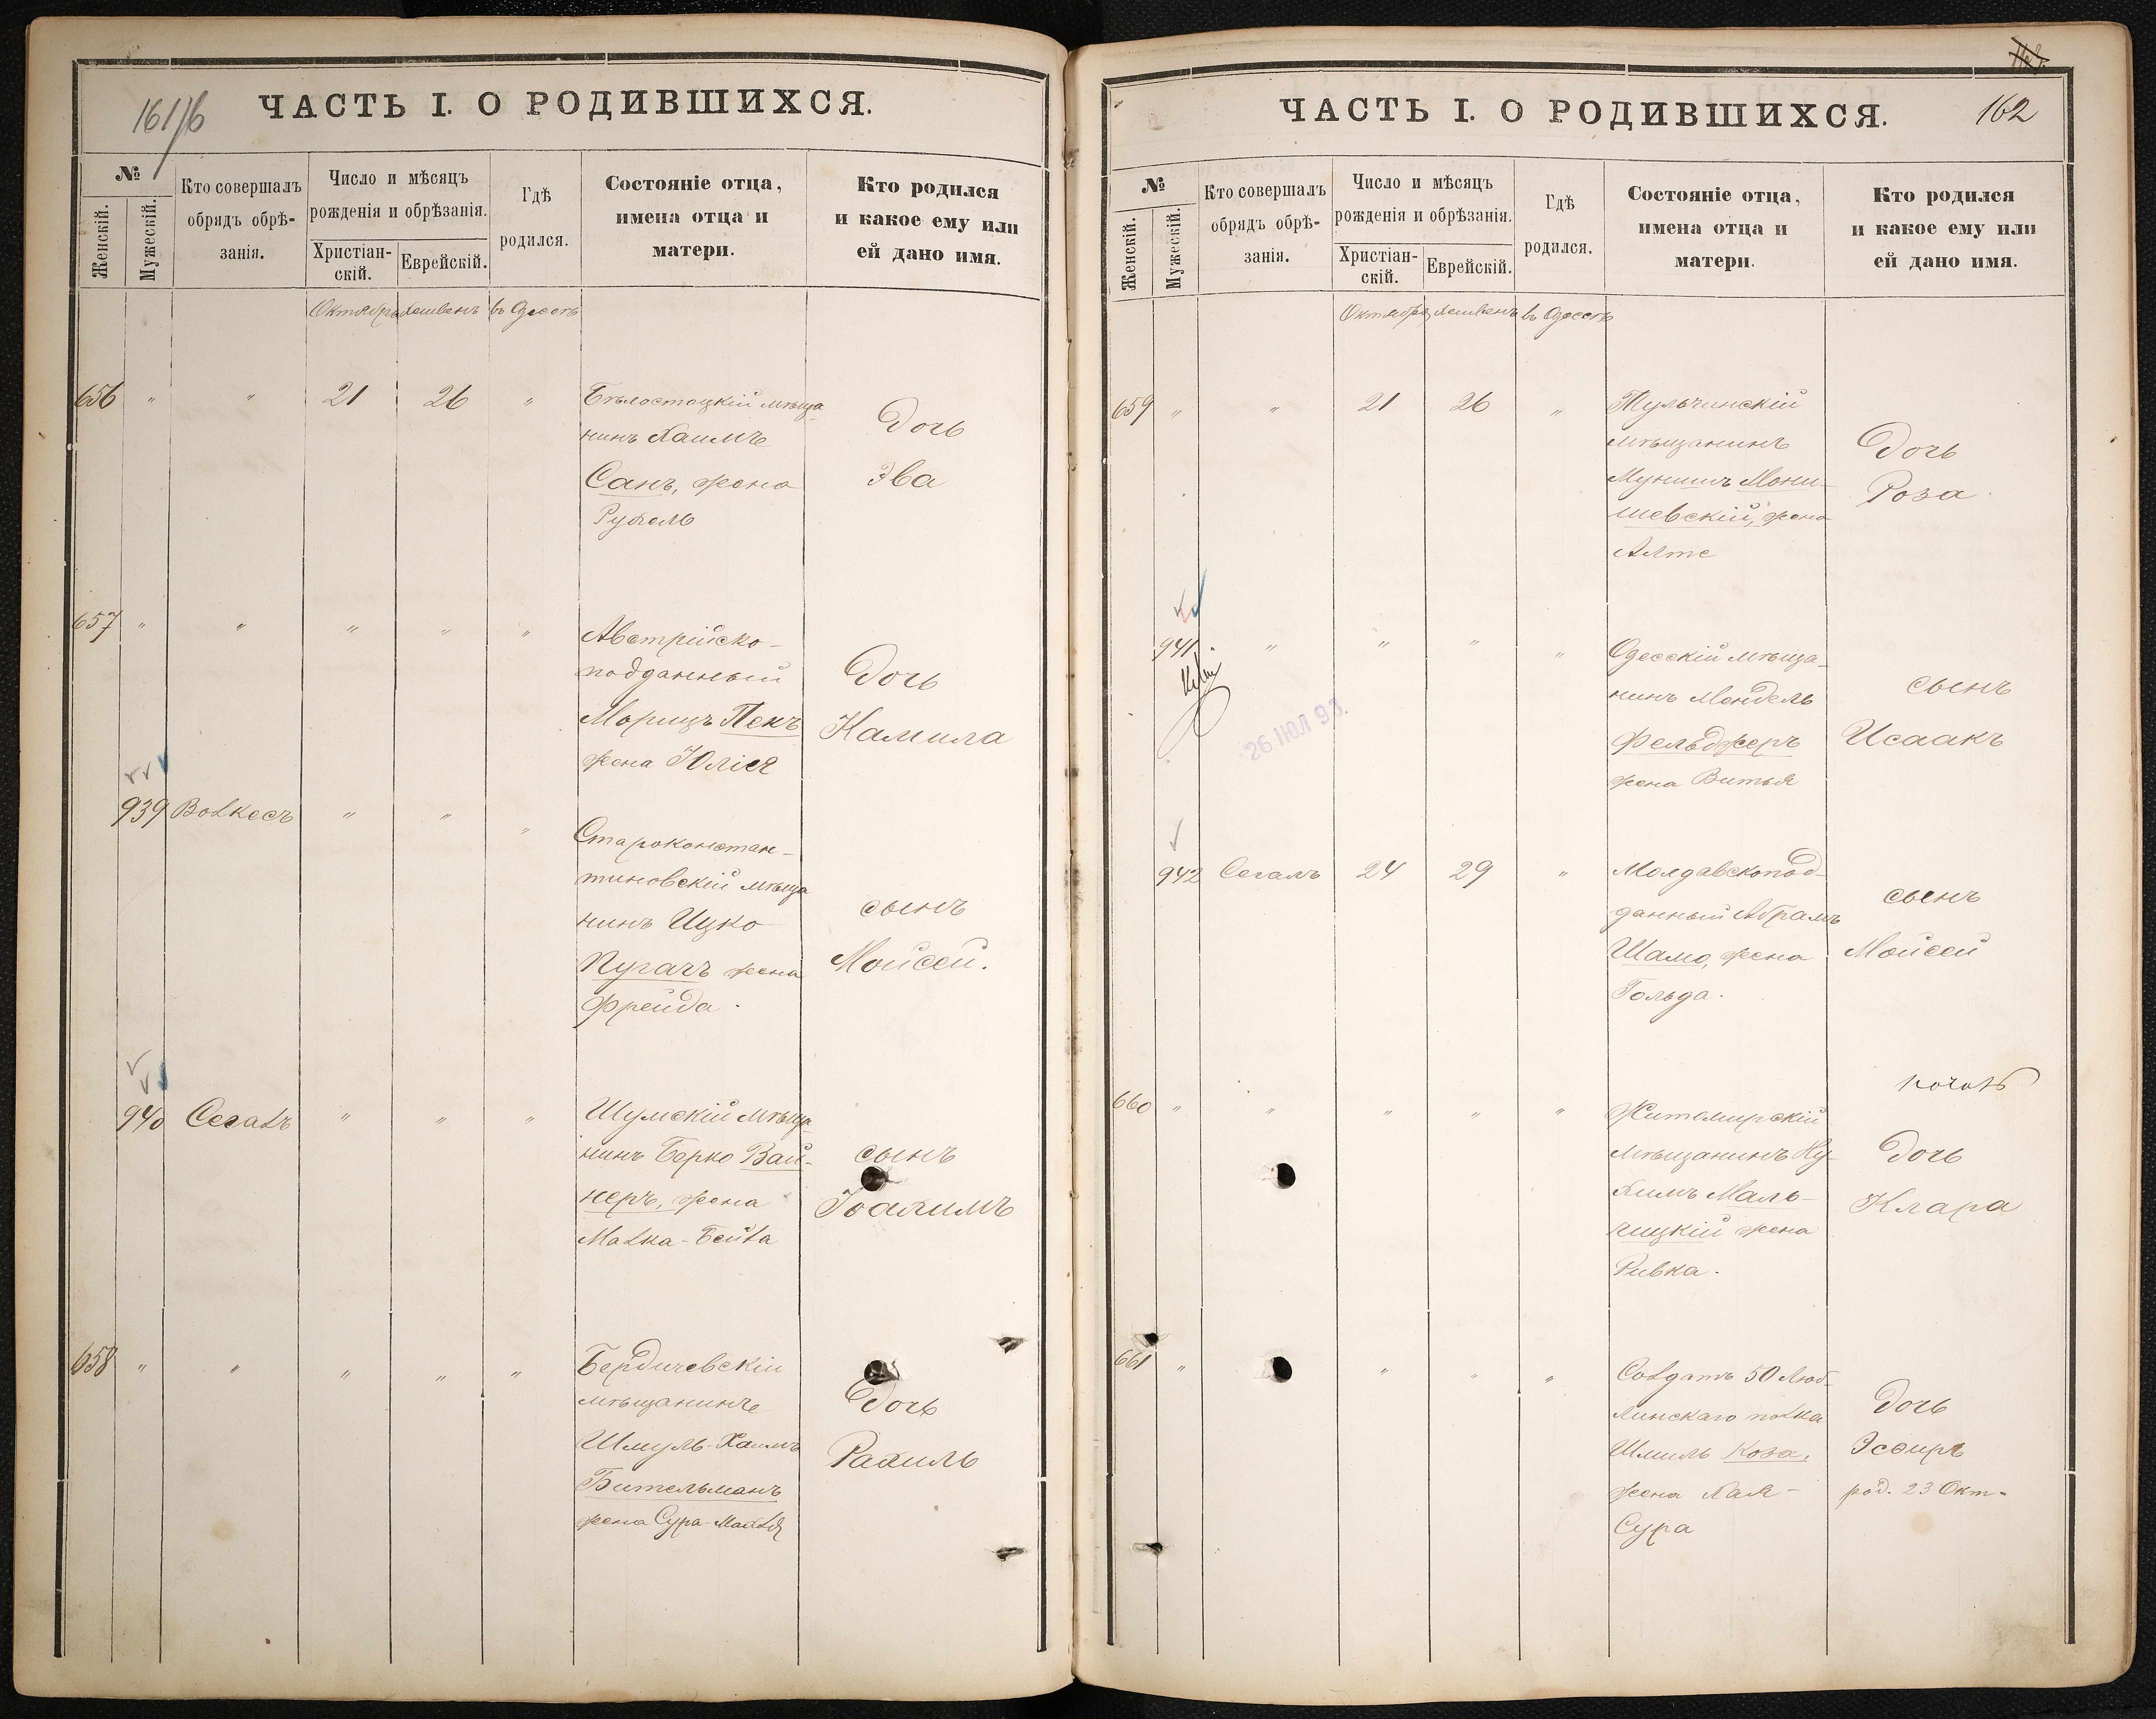 161/б
ЧАСТЬ I. О РОДИВШИХСЯ.
№
Женскій.
Мужескій.
Кто совершалъ
обрядъ обрѣ-
занія.
Число и мѣсяцъ
рожденія и обрѣзанія.
Христіан-
скій.
Еврейскій.
Гдѣ
родился.
Состояніе отца,
имена отца и
матери.
Кто родился
и какое ему или
ей дано имя.
Октябрь Хешвенъ въ Одессѣ
656 " " 21 26 "
Бѣлостоцкій мѣща-
нинъ Хаимъ
Санъ, жена
Рухель
Дочь
Эва
657 " " " " "
Австрійско-
подданный
Морицъ Пекъ
жена Юлія
Дочь
Камила
939 Волкесъ " " "
Староконстан-
тиновскій мѣща
нинъ Ицко
Пугачъ жена
Фрейда.
сынъ
Мойсей.
940 Сегалъ " " "
Шумскій мѣща-
нинъ Берко Вай-
неръ, жена
Малка-Бейла
сынъ
Іоахимъ
658 " " " " "
Бердичевскій
мѣщанинъ
Шмуль-Хаимъ
Бительманъ
жена Сура-Малья
Дочь
Рахиль
162
ЧАСТЬ I. О РОДИВШИХСЯ.
№
Женскій.
Мужескій.
Кто совершалъ
обрядъ обрѣ-
занія.
Число и мѣсяцъ
рожденія и обрѣзанія.
Христіан-
скій.
Еврейскій.
Гдѣ
родился.
Состояніе отца,
имена отца и
матери.
Кто родился
и какое ему или
ей дано имя.
Октябрь Хешвенъ въ Одессѣ
659 " " 21 26 "
Тульчинскій
мѣщанинъ
Мунишъ Мони-
шевскій, жена
Алте
Дочь
Роза
941 " " " "
26 ІЮЛ 93.
Одесскій мѣща-
нинъ Мендель
Фельджеръ
жена Витья
сынъ
Исаакъ
942 Сегалъ 24 29 "
Молдавскопод-
данный Абрамъ
Шамо, жена
Гольда.
сынъ
Мойсей
660 " " " " "
Житомирскій
мѣщанинъ Ну-
химъ Маль-
чицкій жена
Ривка.
Дочь
Клара
661 " " " "
Солдатъ 50 Люб-
линскаго полка
Шмиль Коза,
жена Хая-
Сура
Дочь
Эсѳирь
род. 23 Окт.